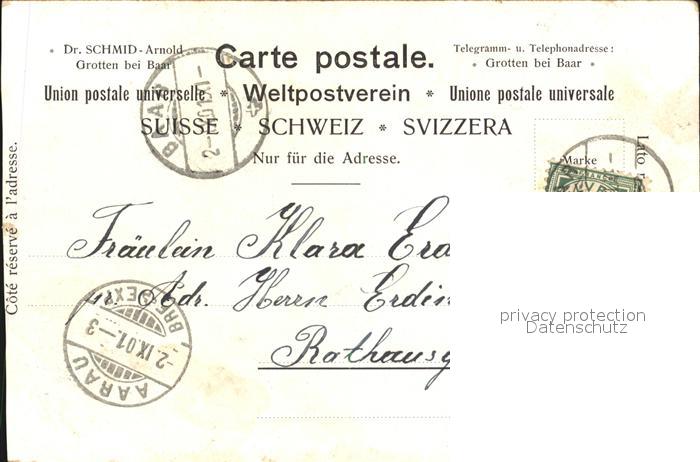 * Dr. SCHMID-Arnold
Grotten bei Baar
Carte postale.
Telegramm- u. Telephonadresse:
* Grotten bei Baar *
Union postale universelle * Weltpostverein * Unione postale universale
SUISSE * SCHWEIZ * SVIZZERA
Nur für die Adresse.
Marke
Côté réservé à l'adresse.
Lato r
BAAR
Fräulein Klara Erd
pr. Adr. Herrn Erdin
Rathausg
AARAU
-2.IX.01.-3
BRF.EXP
privacy protection
Datenschutz